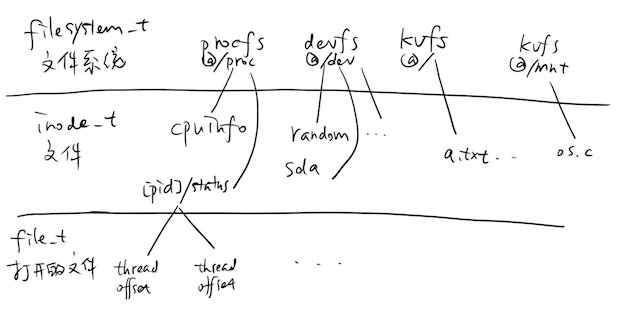 filesystem_t
文件系统
procfs
@/proc
devfs
@/dev
kvfs
@/
kvfs
@/mnt
inode_t
文件
cpuinfo
[pid]/status
random
sda
...
a.txt...
os.c
file_t
打开的文件
thread
offset
thread
offset
....